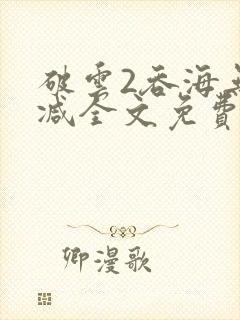 破雲2吞海無
减全文免費
卿漫歌